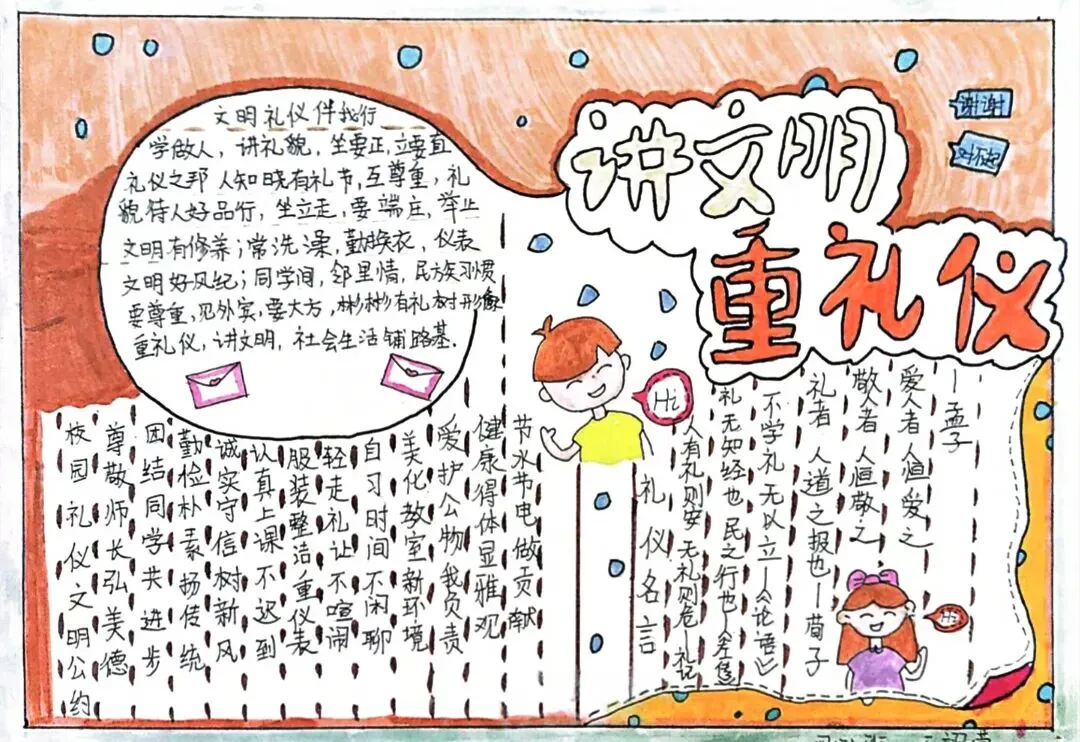 讲文明
重礼仪
谢谢
对不起
文明礼仪伴我行
学做人，讲礼貌，坐要正，立要直
礼仪之邦 人知晓有礼节，互尊重，礼
貌待人好品行，坐立走，要端庄，举止
文明有修养；常洗澡，勤换衣，仪表
文明好风纪；同学间，邻里情，民族习惯
要尊重，见外宾，要大方，彬彬有礼树形像
重礼仪，讲文明，社会生活铺路基.
校园礼仪文明公约
尊敬师长弘美德
团结同学共进步
勤检朴素扬传统
诚实守信树新风
认真上课不迟到
服装整洁重仪表
轻走礼让不喧闹
自习时间不闲聊
美化教室新环境
爱护公物我负责
健康得体显雅观
节水节电做贡献
Hi
礼仪名言
人有礼则安 无礼则危—礼记
礼 无知经也 民之行也—
不学礼 无以立—《论语》
礼者 人道之报也—荀子
敬人者 人恒敬之
爱人者 人恒爱之
—孟子
Hi